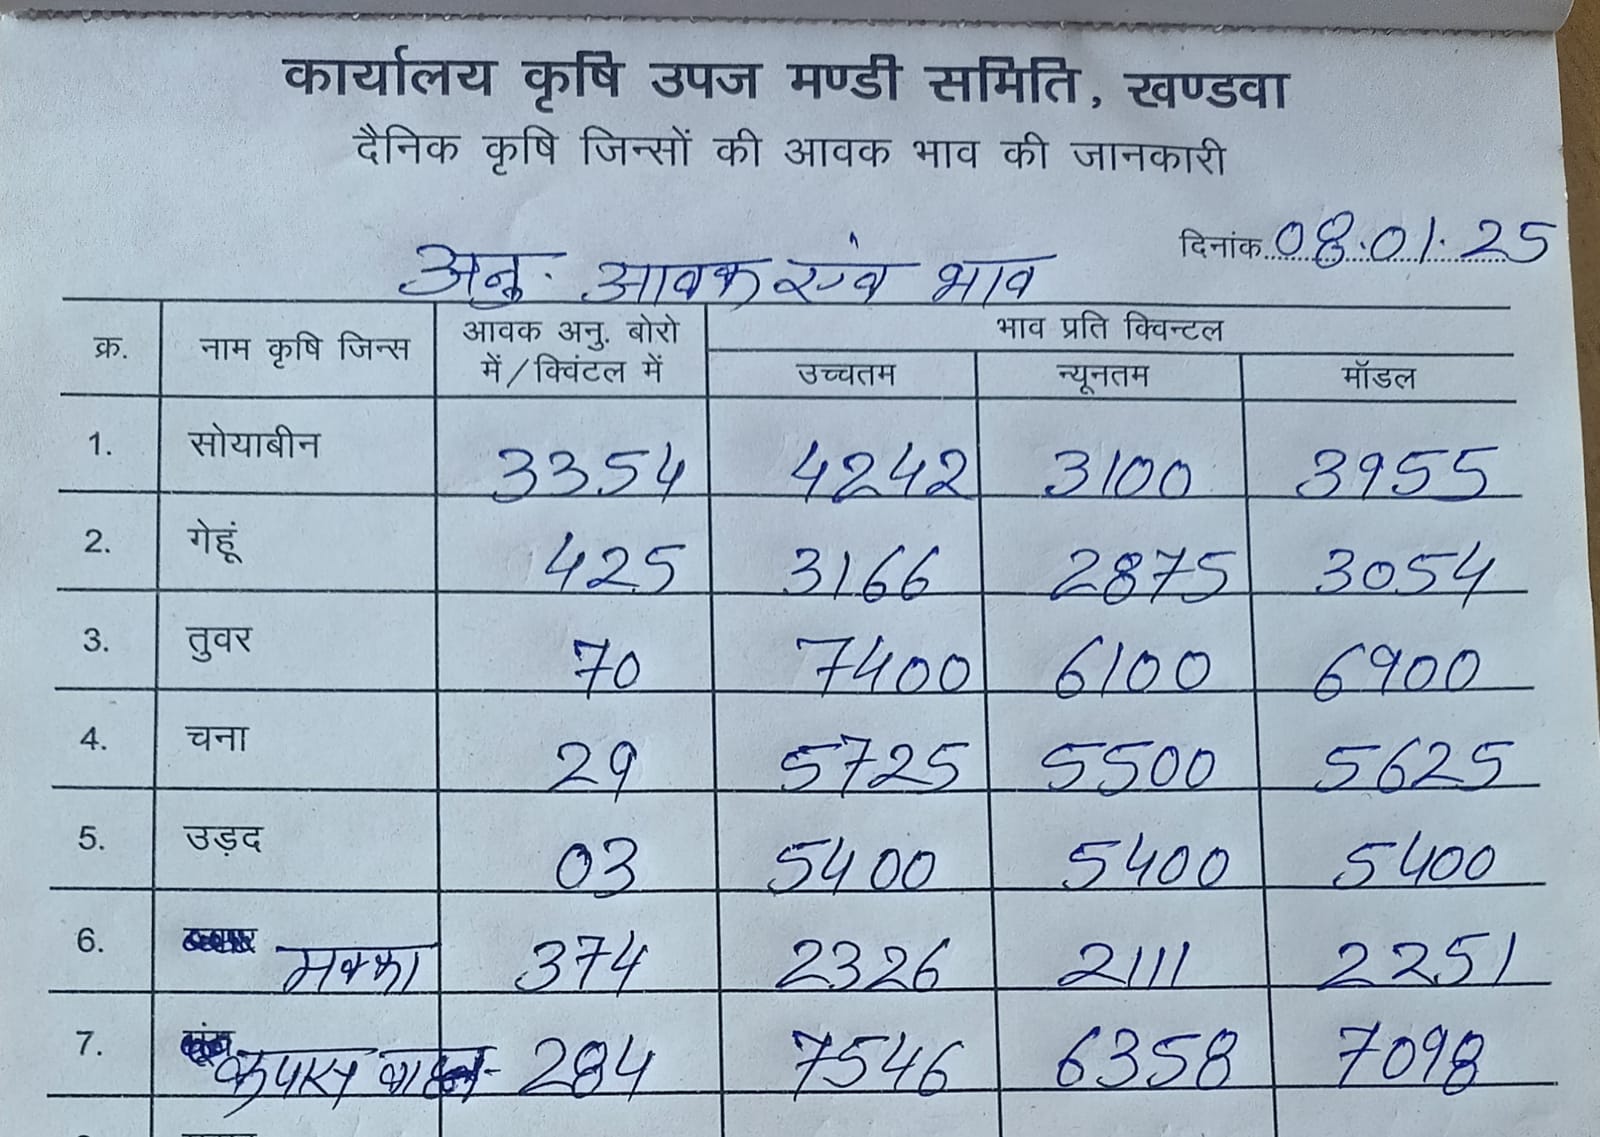 कार्यालय कृषि उपज मण्डी समिति, खण्डवा
दैनिक कृषि जिन्सों की आवक भाव की जानकारी
दिनांक 08.01.25
अनु. आवक एवं भाव
क्र. नाम कृषि जिन्स आवक अनु. बोरो में/क्विंटल में भाव प्रति क्विन्टल
उच्चतम न्यूनतम मॉडल
1. सोयाबीन 3354 4242 3100 3955
2. गेहूं 425 3166 2875 3054
3. तुवर 70 7400 6100 6900
4. चना 29 5725 5500 5625
5. उड़द 03 5400 5400 5400
6. मक्का 374 2326 2111 2251
7. कपास 284 7546 6358 7098